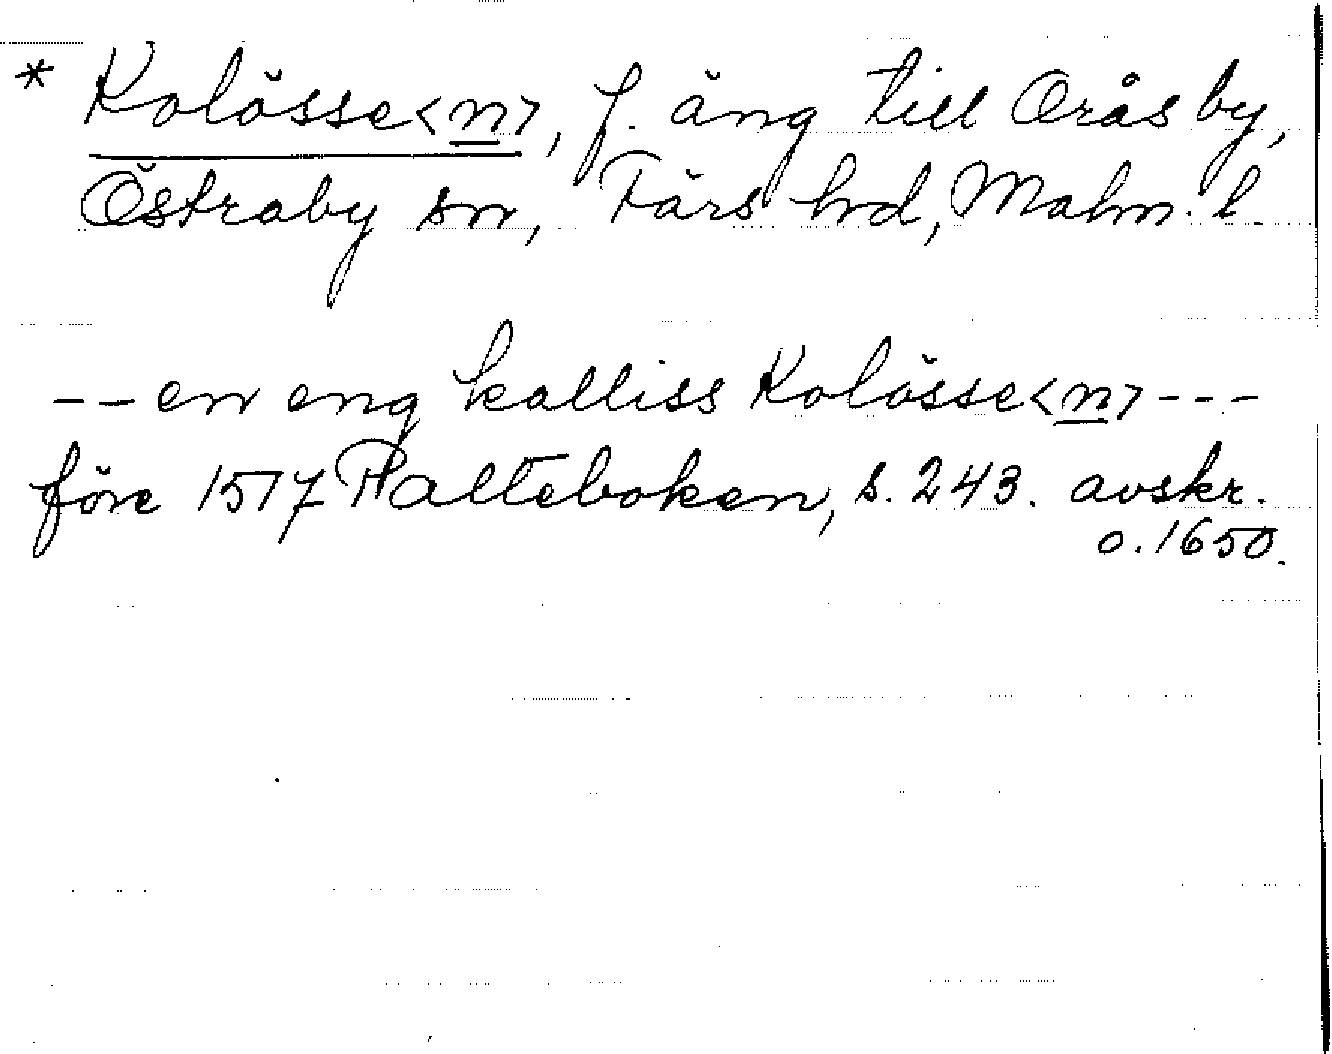 * Kolösse<n>, f. äng till Orås by,
Östraby sn, Färs hd, Malm. l
-- en eng kalliss Kolösse<n> ---
före 1517 Palteboken, s. 243. avskr.
o. 1650.